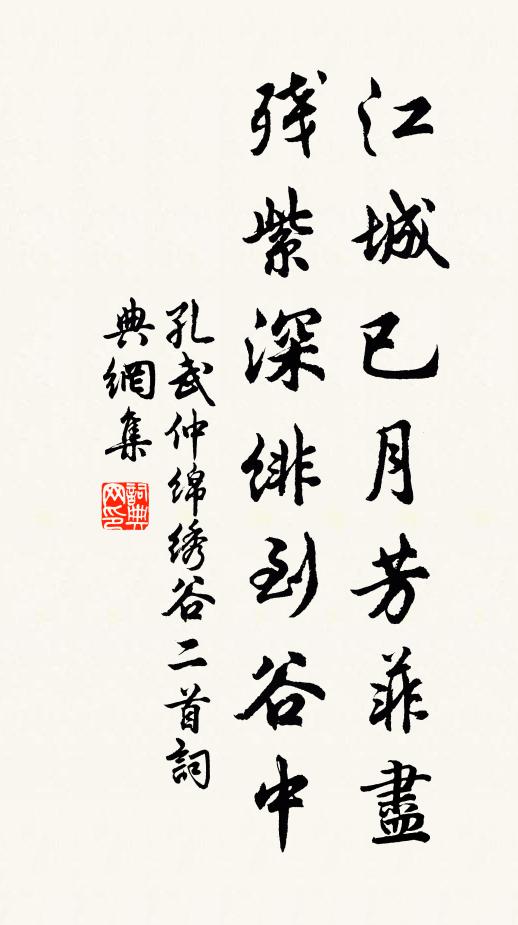 江城已月芳菲盡
残紫深緋到谷中
孔武仲绵绣谷二首詞
典網集
詞典网印